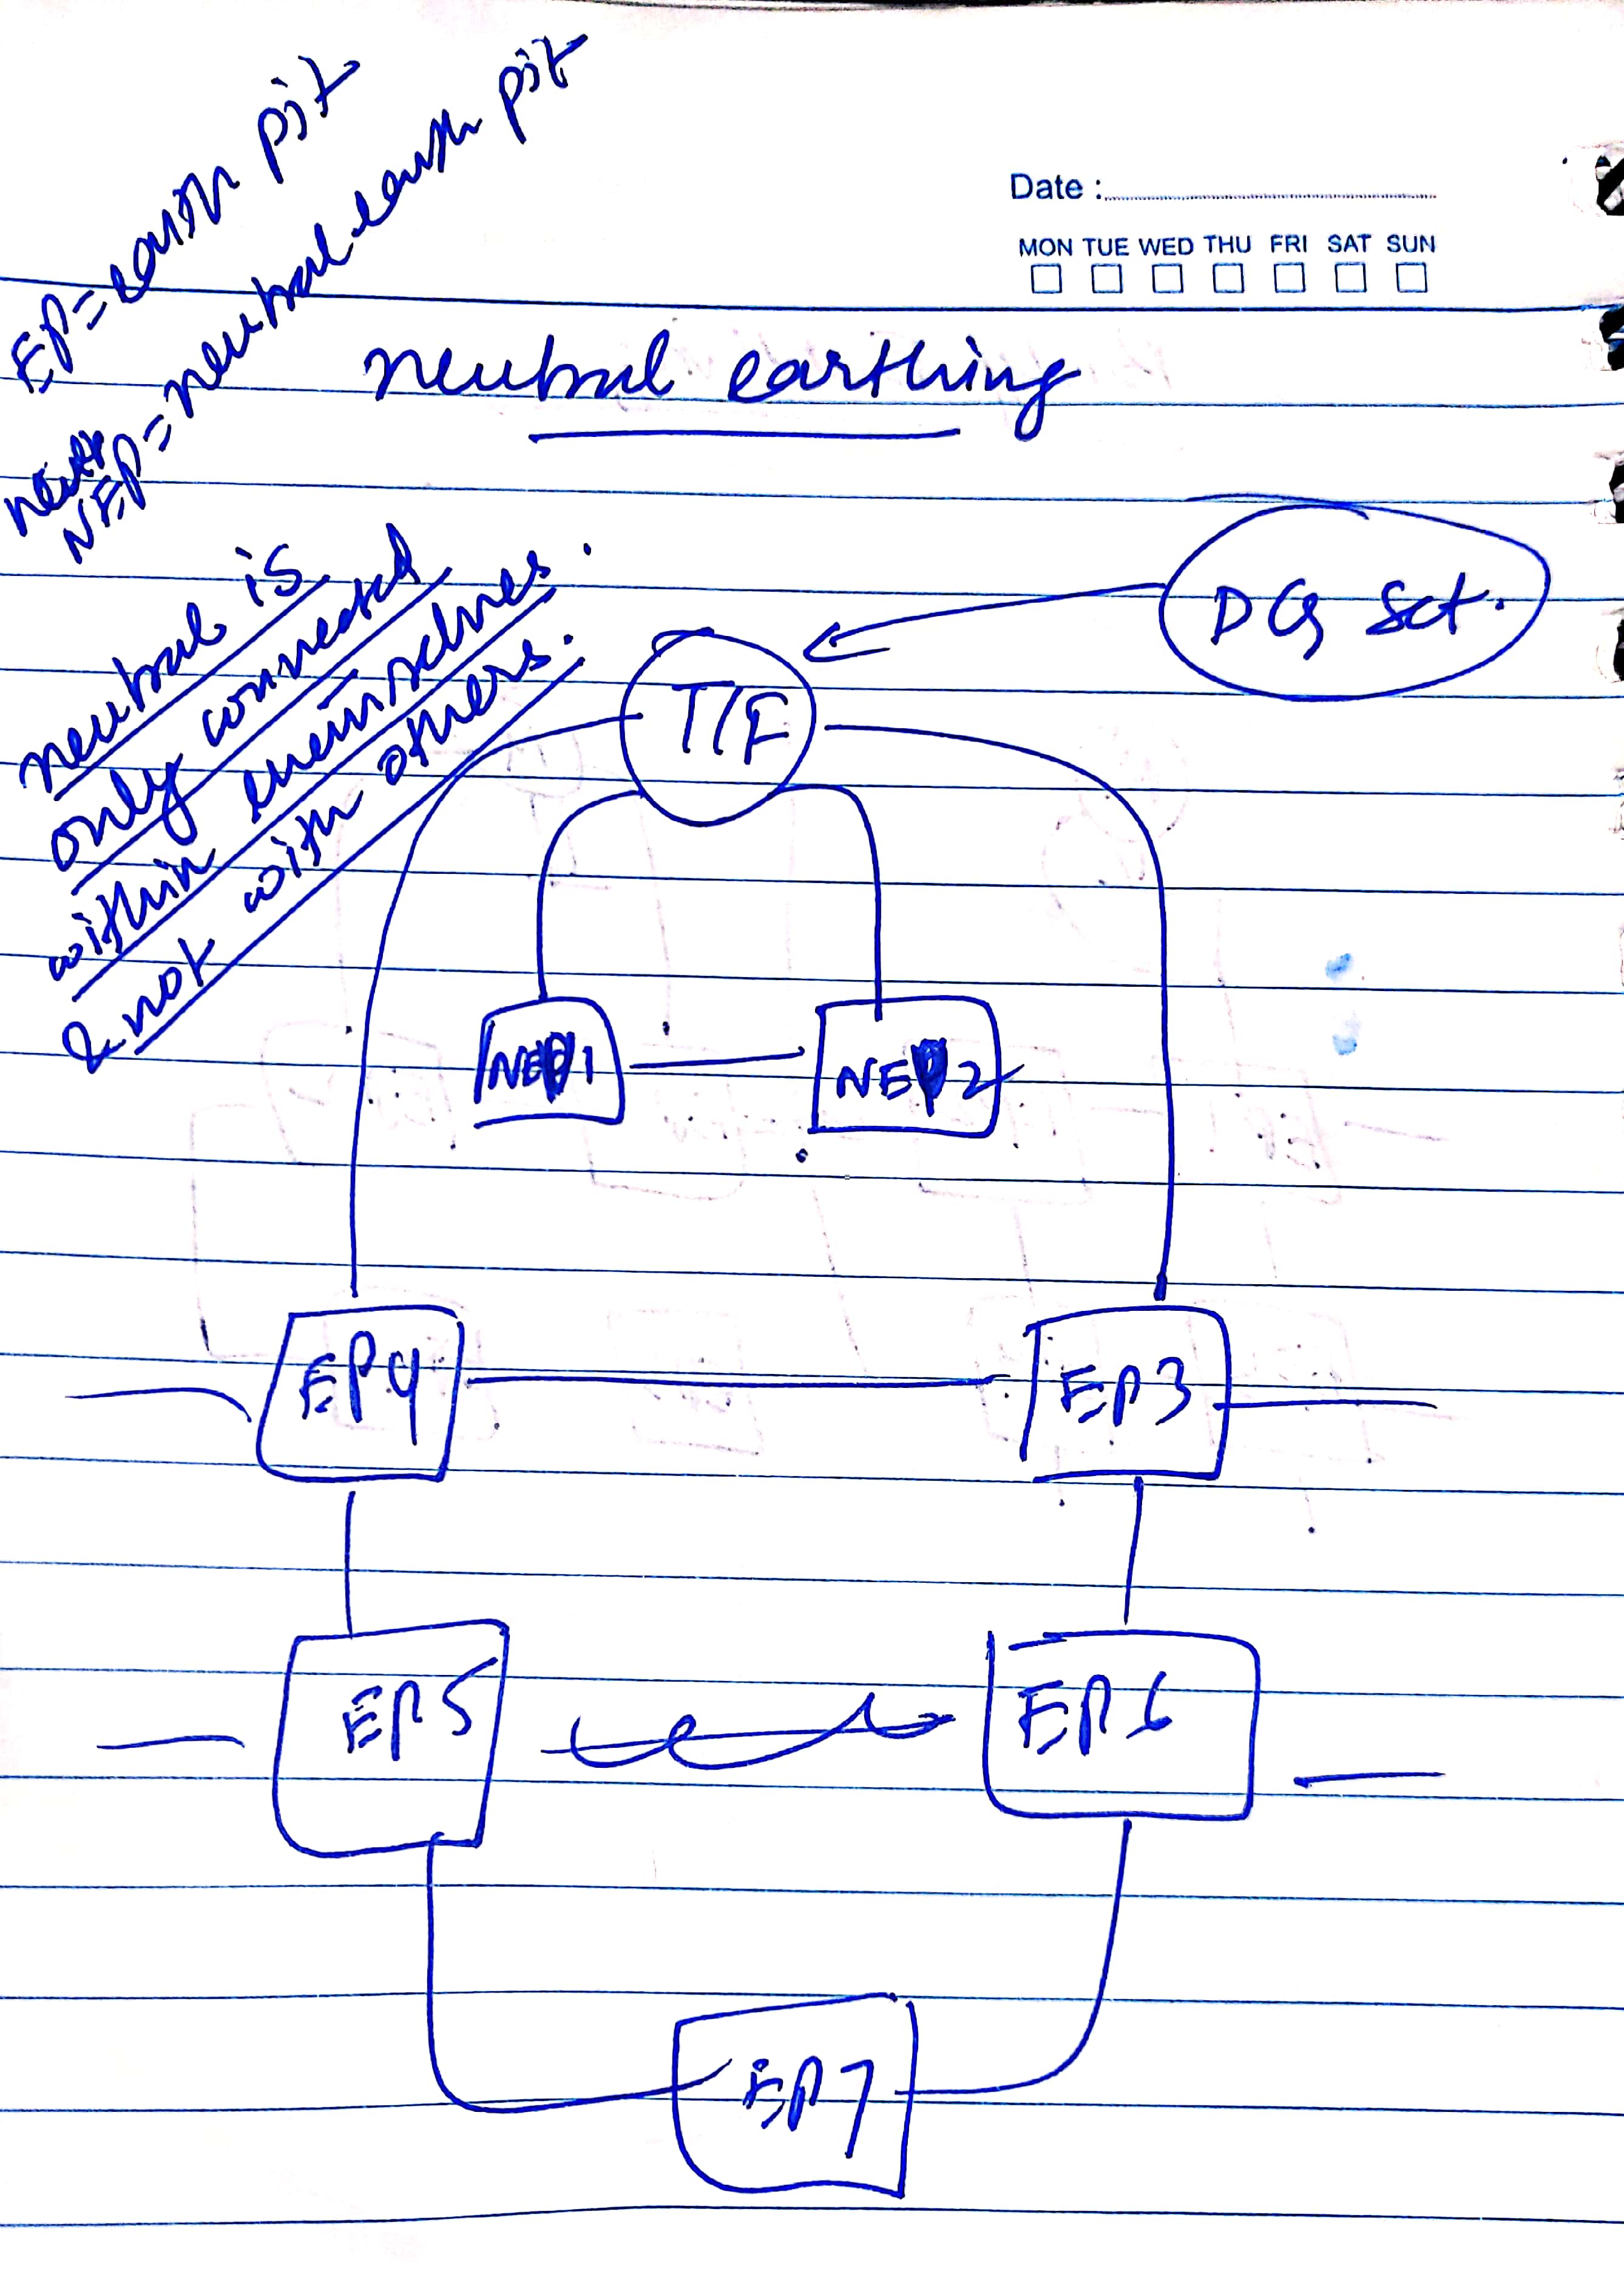 EP = earth pit
neutr
NEP = neutral earth pit
Date :
MON TUE WED THU FRI SAT SUN
neutral earthing
neutral is
only connected
within themselves.
& not with others.
DG Set.
T/F
NEP1
NEP2
EP4
EP3
EP5
EP6
EP7